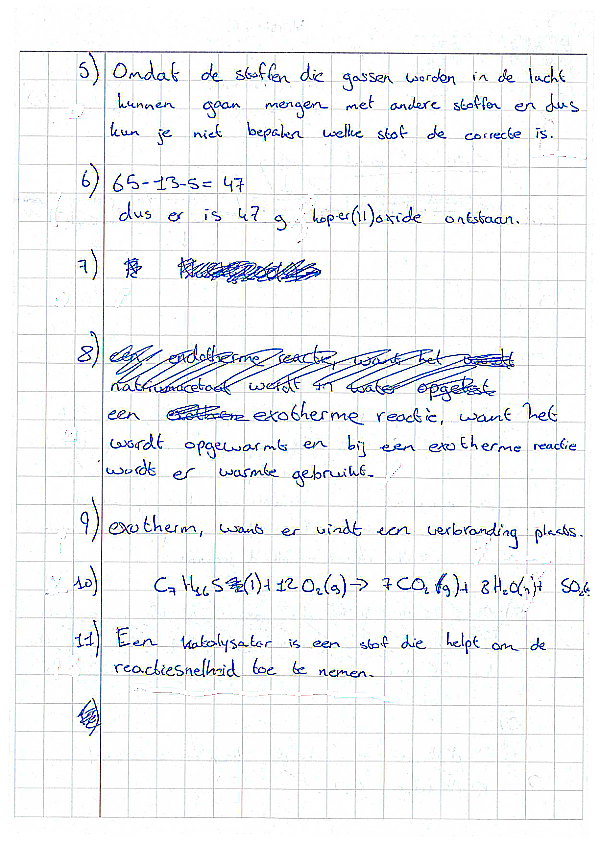 5) Omdat de stoffen die gassen worden in de lucht
kunnen gaan mengen met andere stoffen en dus
kun je niet bepalen welke stof de correcte is.
6) 65-13-5= 47
dus er is 47 g koper(II)oxide ontstaan.
7)
8) een endotherme reactie, want het
natriumacetaat werdt in water opgelost
een exotherme reactie, want het
wordt opgewarmts en bij een exotherme reactie
wordt er warmte gebruikt.
9) exotherm, want er vindt een verbranding plaats.
10) C₇H₁₆S (l) + 12 O₂(g) → 7 CO₂ (g) + 8 H₂O( )+ SO₂
11) Een katalysator is een stof die helpt om de
reactiesnelheid toe te nemen.